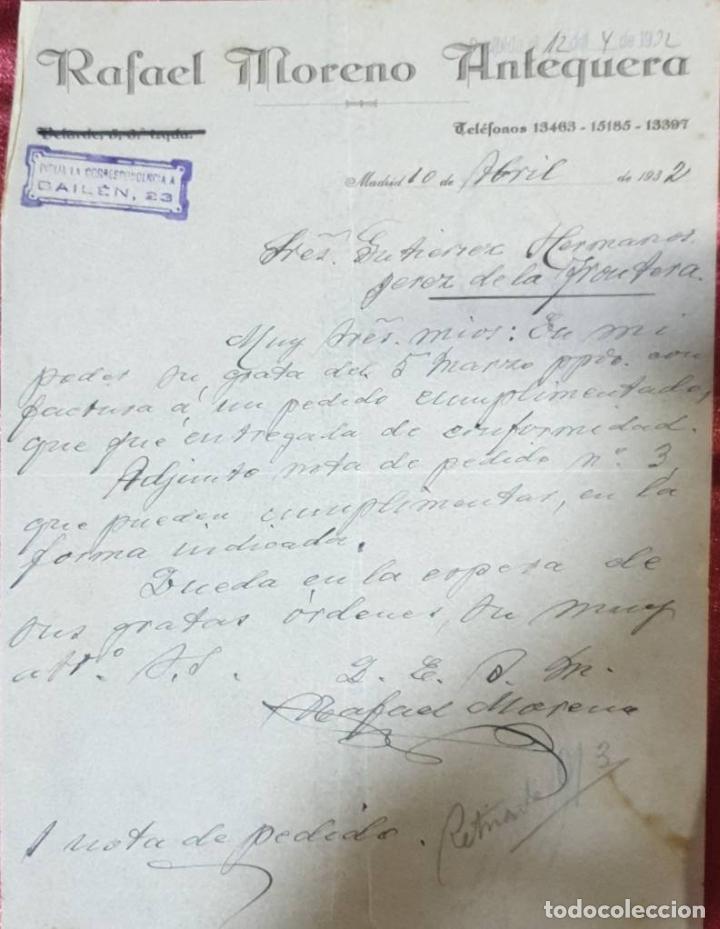 12 de 4 de 1932
Rafael Moreno Antequera
Velarde, 5, 3.º izqda.
Teléfonos 13463 - 15185 - 13397
DIRIJAN LA CORRESPONDENCIA A
BAILÉN, 23
Madrid 10 de Abril de 1932
Sres. Gutierrez Hermanos.
Jerez de la Frontera.
Muy Sres. mios: En mi
poder su grata del 5 Marzo ppdo. con
factura á un pedido cumplimentado,
que fué entregada de conformidad.
Adjunto nota de pedido nº. 3,
que pueden cumplimentar, en la
forma indicada.
Queda en la espera de
sus gratas órdenes, su muy
attº. S.S. Q. E. S. M.
Rafael Moreno
3
1 nota de pedido.
todocoleccion